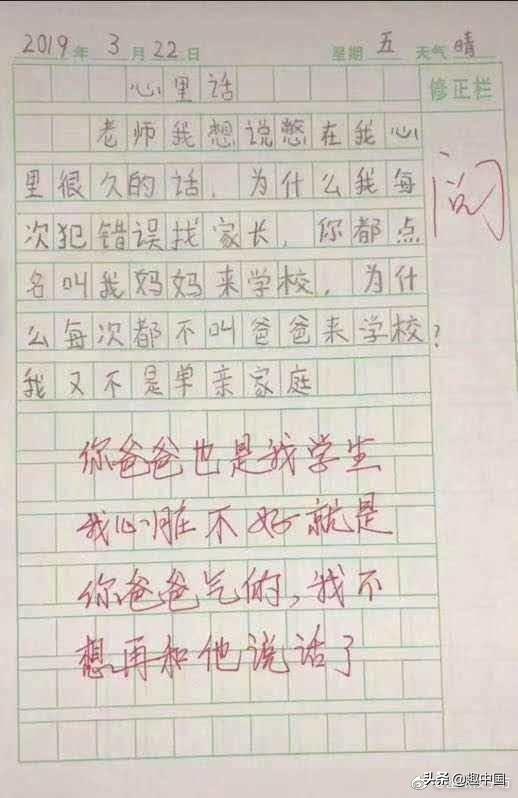 2019年3月22日 星期 五 天气 晴
修正栏
心里话
老师我想说憋在我心
里很久的话，为什么我每
次犯错误找家长，你都点
名叫我妈妈来学校，为什
么每次都不叫爸爸来学校？
我又不是单亲家庭
阅
你爸爸也是我学生
我心脏不好就是
你爸爸气的，我不
想再和他说话了
头条 @趣中国